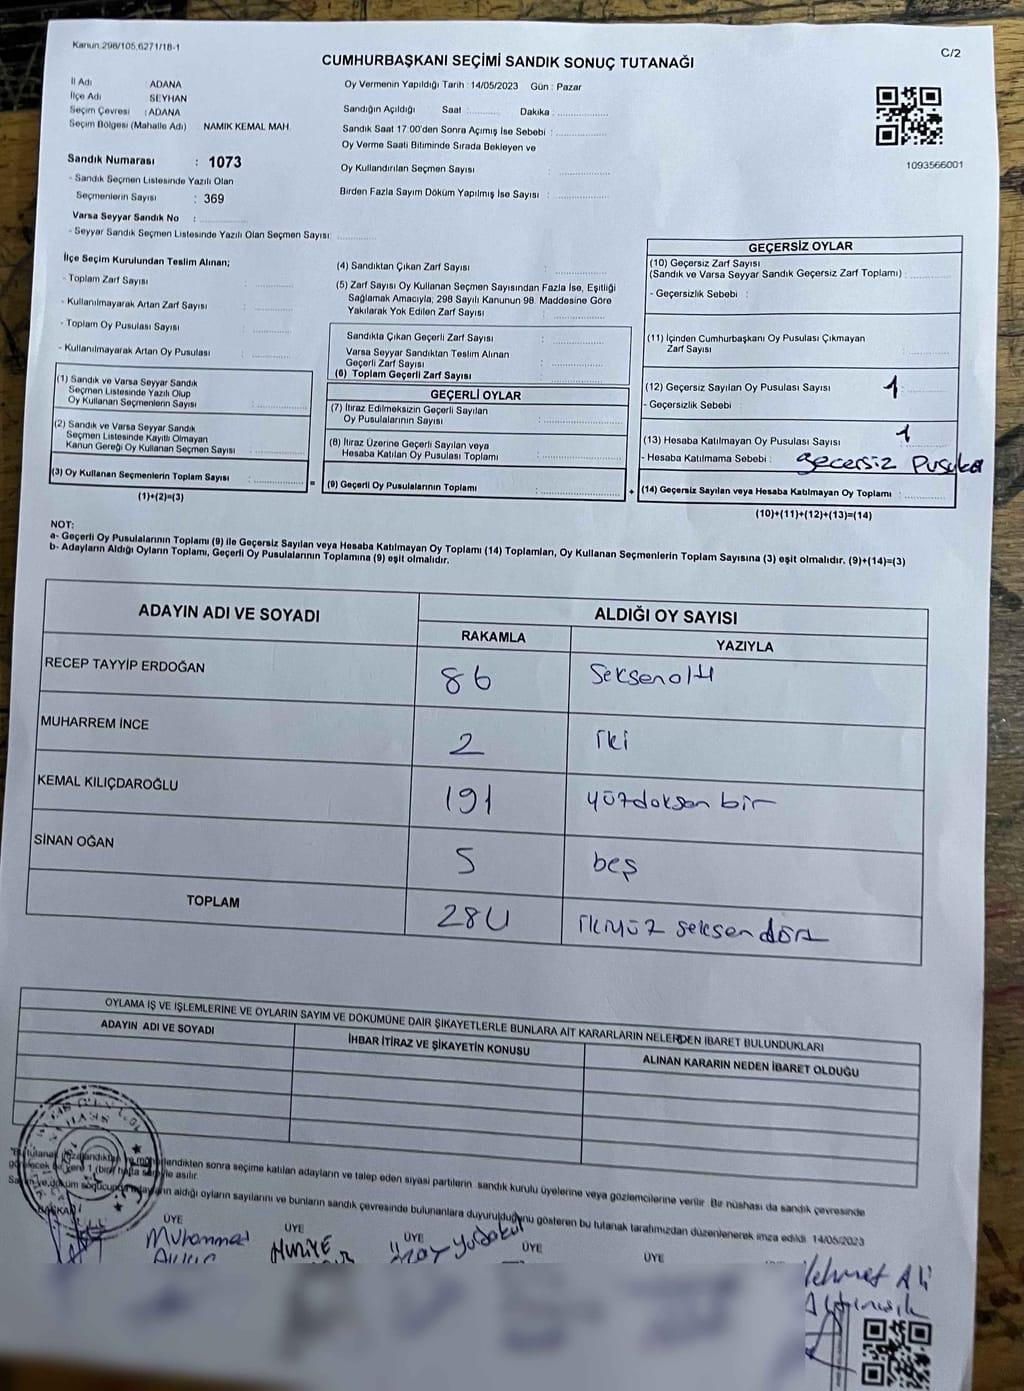 Kanun:298/105,6271/18-1
C/2
CUMHURBAŞKANI SEÇİMİ SANDIK SONUÇ TUTANAĞI
İl Adı : ADANA
İlçe Adı SEYHAN
Seçim Çevresi : ADANA
Seçim Bölgesi (Mahalle Adı) NAMIK KEMAL MAH.
Sandık Numarası : 1073
- Sandık Seçmen Listesinde Yazılı Olan
Seçmenlerin Sayısı : 369
Varsa Seyyar Sandık No :
- Seyyar Sandık Seçmen Listesinde Yazılı Olan Seçmen Sayısı:
Oy Vermenin Yapıldığı Tarih : 14/05/2023 Gün : Pazar
Sandığın Açıldığı Saat : Dakika :
Sandık Saat 17:00'den Sonra Açımış İse Sebebi :
Oy Verme Saati Bitiminde Sırada Bekleyen ve
Oy Kullandırılan Seçmen Sayısı :
Birden Fazla Sayım Döküm Yapılmış İse Sayısı :
1093566001
İlçe Seçim Kurulundan Teslim Alınan;
- Toplam Zarf Sayısı :
- Kullanılmayarak Artan Zarf Sayısı :
- Toplam Oy Pusulası Sayısı :
- Kullanılmayarak Artan Oy Pusulası :
(1) Sandık ve Varsa Seyyar Sandık
Seçmen Listesinde Yazılı Olup
Oy Kullanan Seçmenlerin Sayısı :
(2) Sandık ve Varsa Seyyar Sandık
Seçmen Listesinde Kayıtlı Olmayan
Kanun Gereği Oy Kullanan Seçmen Sayısı :
(3) Oy Kullanan Seçmenlerin Toplam Sayısı :
(1)+(2)=(3)
=
(4) Sandıktan Çıkan Zarf Sayısı :
(5) Zarf Sayısı Oy Kullanan Seçmen Sayısından Fazla İse, Eşitliği
Sağlamak Amacıyla; 298 Sayılı Kanunun 98. Maddesine Göre
Yakılarak Yok Edilen Zarf Sayısı :
Sandıkta Çıkan Geçerli Zarf Sayısı :
Varsa Seyyar Sandıktan Teslim Alınan
Geçerli Zarf Sayısı :
(6) Toplam Geçerli Zarf Sayısı :
GEÇERLİ OYLAR
(7) İtiraz Edilmeksizin Geçerli Sayılan
Oy Pusulalarının Sayısı :
(8) İtiraz Üzerine Geçerli Sayılan veya
Hesaba Katılan Oy Pusulası Toplamı :
(9) Geçerli Oy Pusulalarının Toplamı :
+
GEÇERSİZ OYLAR
(10) Geçersiz Zarf Sayısı
(Sandık ve Varsa Seyyar Sandık Geçersiz Zarf Toplamı) :
- Geçersizlik Sebebi :
(11) İçinden Cumhurbaşkanı Oy Pusulası Çıkmayan
Zarf Sayısı :
(12) Geçersiz Sayılan Oy Pusulası Sayısı : 1
- Geçersizlik Sebebi :
(13) Hesaba Katılmayan Oy Pusulası Sayısı : 1
- Hesaba Katılmama Sebebi : Gecersiz Pusula
(14) Geçersiz Sayılan veya Hesaba Katılmayan Oy Toplamı :
(10)+(11)+(12)+(13)=(14)
NOT:
a- Geçerli Oy Pusulalarının Toplamı (9) ile Geçersiz Sayılan veya Hesaba Katılmayan Oy Toplamı (14) Toplamları, Oy Kullanan Seçmenlerin Toplam Sayısına (3) eşit olmalıdır. (9)+(14)=(3)
b- Adayların Aldığı Oyların Toplamı, Geçerli Oy Pusulalarının Toplamına (9) eşit olmalıdır.
ADAYIN ADI VE SOYADI ALDIĞI OY SAYISI
RAKAMLA YAZIYLA
RECEP TAYYİP ERDOĞAN 86 Seksenaltı
MUHARREM İNCE 2 İki
KEMAL KILIÇDAROĞLU 191 yüzdoksan bir
SİNAN OĞAN 5 beş
TOPLAM 284 İkiyüz seksen dört
OYLAMA İŞ VE İŞLEMLERİNE VE OYLARIN SAYIM VE DÖKÜMÜNE DAİR ŞİKAYETLERLE BUNLARA AİT KARARLARIN NELERDEN İBARET BULUNDUKLARI
ADAYIN ADI VE SOYADI İHBAR İTİRAZ VE ŞİKAYETİN KONUSU ALINAN KARARIN NEDEN İBARET OLDUĞU
sonra seçime katılan adayların ve talep eden siyasi partilerin sandık kurulu üyelerine veya gözlemcilerine verilir. Bir nüshası da sandık çevresinde
yere 1 (bir) hafta asılır.
aldığı oyların sayılarını ve bunların sandık çevresinde bulunanlara duyurulduğunu gösteren bu tutanak tarafımızdan düzenlenerek imza edildi. 14/05/2023
BAŞKAN ÜYE ÜYE ÜYE ÜYE ÜYE
Muhammad
Mehmet Ali